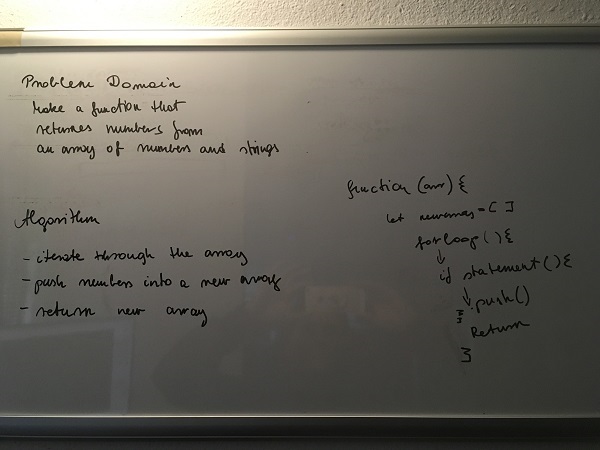 Problem Domain
Make a function that
returnes numbers from
an array of numbers and strings
Algorithm
- iterate through the array
- push numbers into a new array
- return new array
function (arr) {
let newarray = [ ]
forloop ( ) {
↓
if statement ( ) {
↓ .push( )
}
}
Return
}